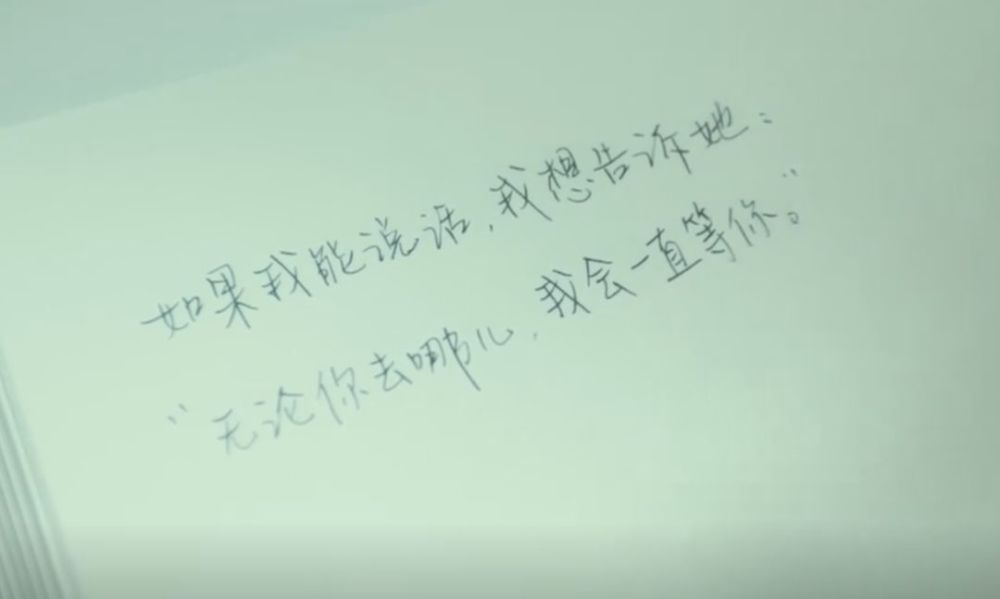 如果我能说话,我想告诉她:
“无论你去哪儿,我会一直等你。”